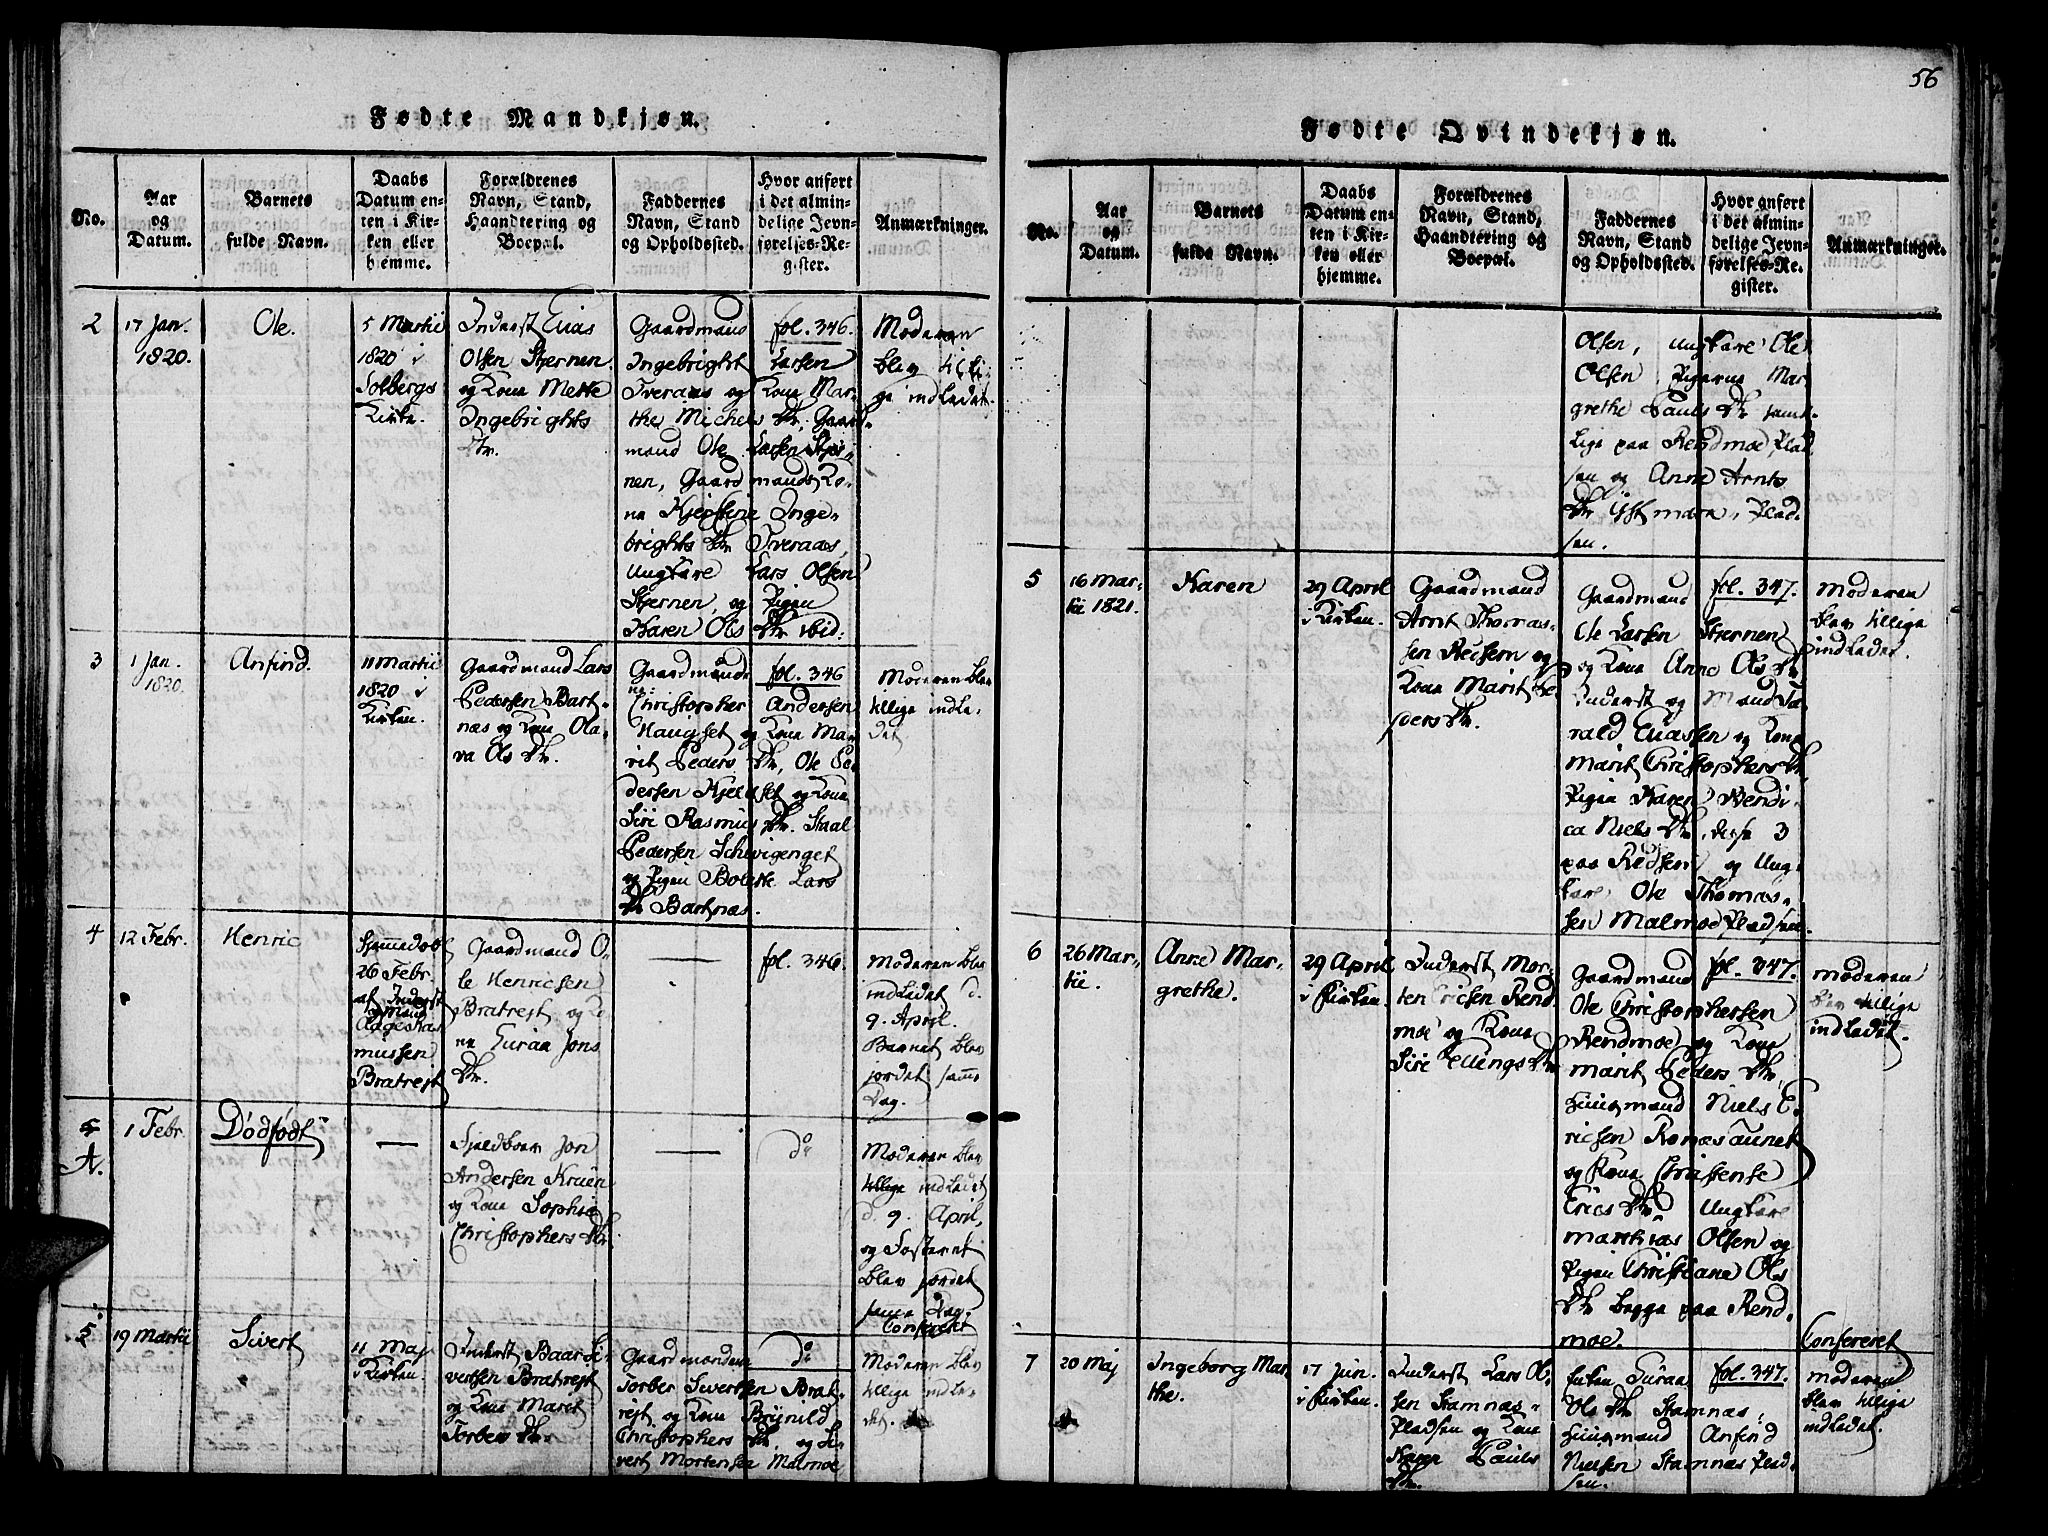 56
Fødte Mandkjøn.
No.
Aar
og
Datum.
Barnets
fulde Navn.
Daabs
Datum en-
ten i Kir-
ken eller
hjemme.
Forældrenes
Navn, Stand,
Haandtering og
Boepæl.
Faddernes
Navn, Stand
og Opholdssted.
Hvor anført
i det almin-
delige Jevn-
førelses-Re-
gister.
Anmærkninger.
2
17 Jan.
1820.
Ole.
5 Martii
1820 i
Solbergs
Kirke.
Inderst Elias
Olsen Stjernen
og Kona Mette
Ingebrights
Dtr.
Gaardmand
Ingebright Larsen
Tveraas og Kona Mar-
the Michels Dtr, Gaard-
mand Ole Larsen Stjer-
nen, Gaardmands Ko-
na Kjerstine Inge-
brights Dtr Tveraas,
Ungkare Lars Olsen
Stjernen, og Pigen
Karen Ols Dtr ibid:
fol. 346.
Moderen
blev tilli-
ge indledet.
3
1 Jan.
1820.
Anfind.
11 Martii
1820 i
Kirken.
Gaardmand Lars
Pedersen Bart-
næs og Kona Ola-
va Ols Dtr.
Gaardmænde-
ne: Christopher Andersen
Haugset og Kona Ma-
rit Peders Dtr, Ole Pe-
dersen Kjeldset og Kona
Siri Rasmus Dtr. Staal
Pedersen Schevigenget
og Pigen Bolette Lars
Dtr Bartnæs.
fol. 346
Moderen blev
tillige indle-
det
4
12 Febr.
Henric
Hjemmedøbt
26 Febr.
af Inderst
Aage Ras-
mussen
Bratrejt
Gaardmand O-
le Henricsen
Bratrejt og Ko-
na Guraa Jons
Dtr.
—
fol. 346.
Moderen blev
indledet d.
9. April.
Barnet blev
jordet samme
Dag.
5
A.
1 Febr.
Dødfødt
—
Fjeldboer Jon
Andersen
og Kona Sophie
Christophers Dtr.
—
do
Moderen blev
tillige indledet
d. 9. April,
og Fosteret
blev jordet
samme Dag.
Confereret
5
19 Martii
Sivert
11 Maj
i Kirken.
Inderst Baar Si-
vertsen Bratrejt
og Kona Marit
Torbers Dtr
Gaardmændene
Torber Sivertsen Brat-
rejt og Kona Brynild
Christophers Dtr, og Si-
vert Mortensen Malmoe
do
Moderen blev
tillige indle-
det.
Fødte Qvindekjøn.
No.
Aar
og
Datum.
Barnets
fulde Navn.
Daabs
Datum en-
ten i Kir-
ken eller
hjemme.
Forældrenes
Navn, Stand,
Haandtering og
Boepæl.
Faddernes
Navn, Stand
og Opholdssted.
Hvor anført
i det almin-
delige Jevn-
førelses-Re-
gister.
Anmærkninger.
Olsen, Ungkare Ole
Olsen, Pigerne Mar-
grethe Pauls Dtr samt-
lige paa Rendmoe Plad-
sen og Anne Arnts
Dtr Plad-
sen.
5
16 Mar-
tii 1821.
Karen
29 April
i Kirken.
Gaardmand
Arnt Thomas-
sen Reisem og
Kona Marit Je-
spers Dtr.
Gaardmand
Ole Larsen Stjernen
og Kona Anne Ols Dtr
Inderst og Mand Ta-
rald Eliassen og Kona
Marit Christophers Dtr
Pigen Karen Rendi-
ca Niels Dtr, disse 3
paa Reissem og Ung-
kare Ole Thomas-
sen Malmoe Pladsen.
fol. 347.
Moderen
blev tillige
indledet.
6
26 Mar-
tii.
Anne Mar-
grethe.
29 April
i Kirken.
Inderst Mor-
ten Ericsen Rend-
moe og Kona
Siri Ellings Dtr
Gaardmand
Ole Christophersen
Rendmoe og Kona
Marit Peders Dtr,
Huusmand Niels E-
ricsen Ronæstaunet
og Kona Christense
Erics Dtr, Ungkare
Mathias Olsen og
Pigen Christiana Ols
Dtr begge paa Rend-
moe.
fol. 347.
Moderen
blev tillige
indledet.
7
20 Maj
Ingeborg Mar-
the.
17 Jun.
i Kirken.
Inderst Lars Ol-
sen Stamnæs-
Pladsen og Kona
Karen Pauls
Dtr.
Enken Guraa
Ols Dtr Stamnæs,
Huusmand Anfind
Nielsen Stamnæs Plad-
sen.
fol. 347.
Confereret
Moderen
blev tillige
indledet.